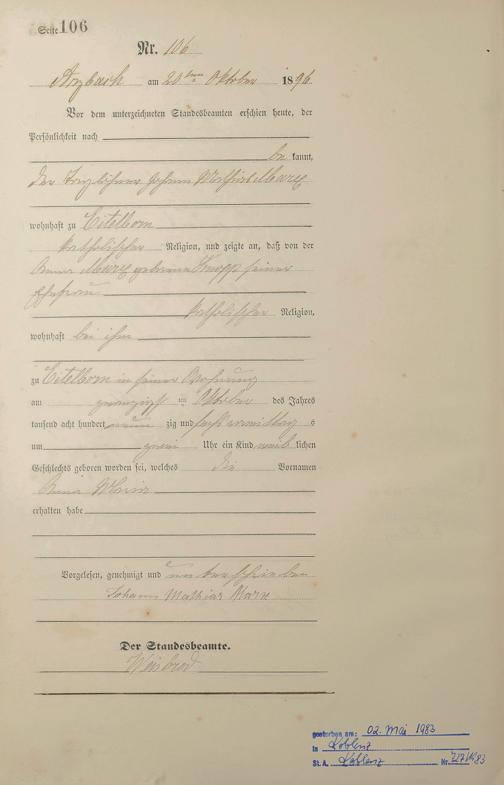 Seite 106
Nr. 106
Arzbach am 20ten Oktober 1896.
Vor dem unterzeichneten Standesbeamten erschien heute, der
Persönlichkeit nach
be kannt,
der Taglöhner Johann Mathias Marx
wohnhaft zu Eitelborn
katholischer Religion, und zeigte an, daß von der
Anna Marx geborene Knopp seiner
Ehefrau
katholischer Religion,
wohnhaft bei ihm
zu Eitelborn in seiner Wohnung
am zwanzigst en Oktober des Jahres
tausend acht hundert neun zig und sechs vormittag s
um zwei Uhr ein Kind weib lichen
Geschlechts geboren worden sei, welches die Vornamen
Anna Maria
erhalten habe
Vorgelesen, genehmigt und unterschrieben
Johann Mathias Marx
Der Standesbeamte.
Weisbrod
gestorben am: 02. Mai 1983
in Koblenz
St. A. Koblenz Nr.